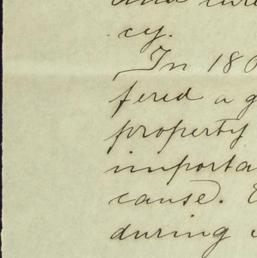 cy.
In 180
fered a g
property
importa
cause.
during